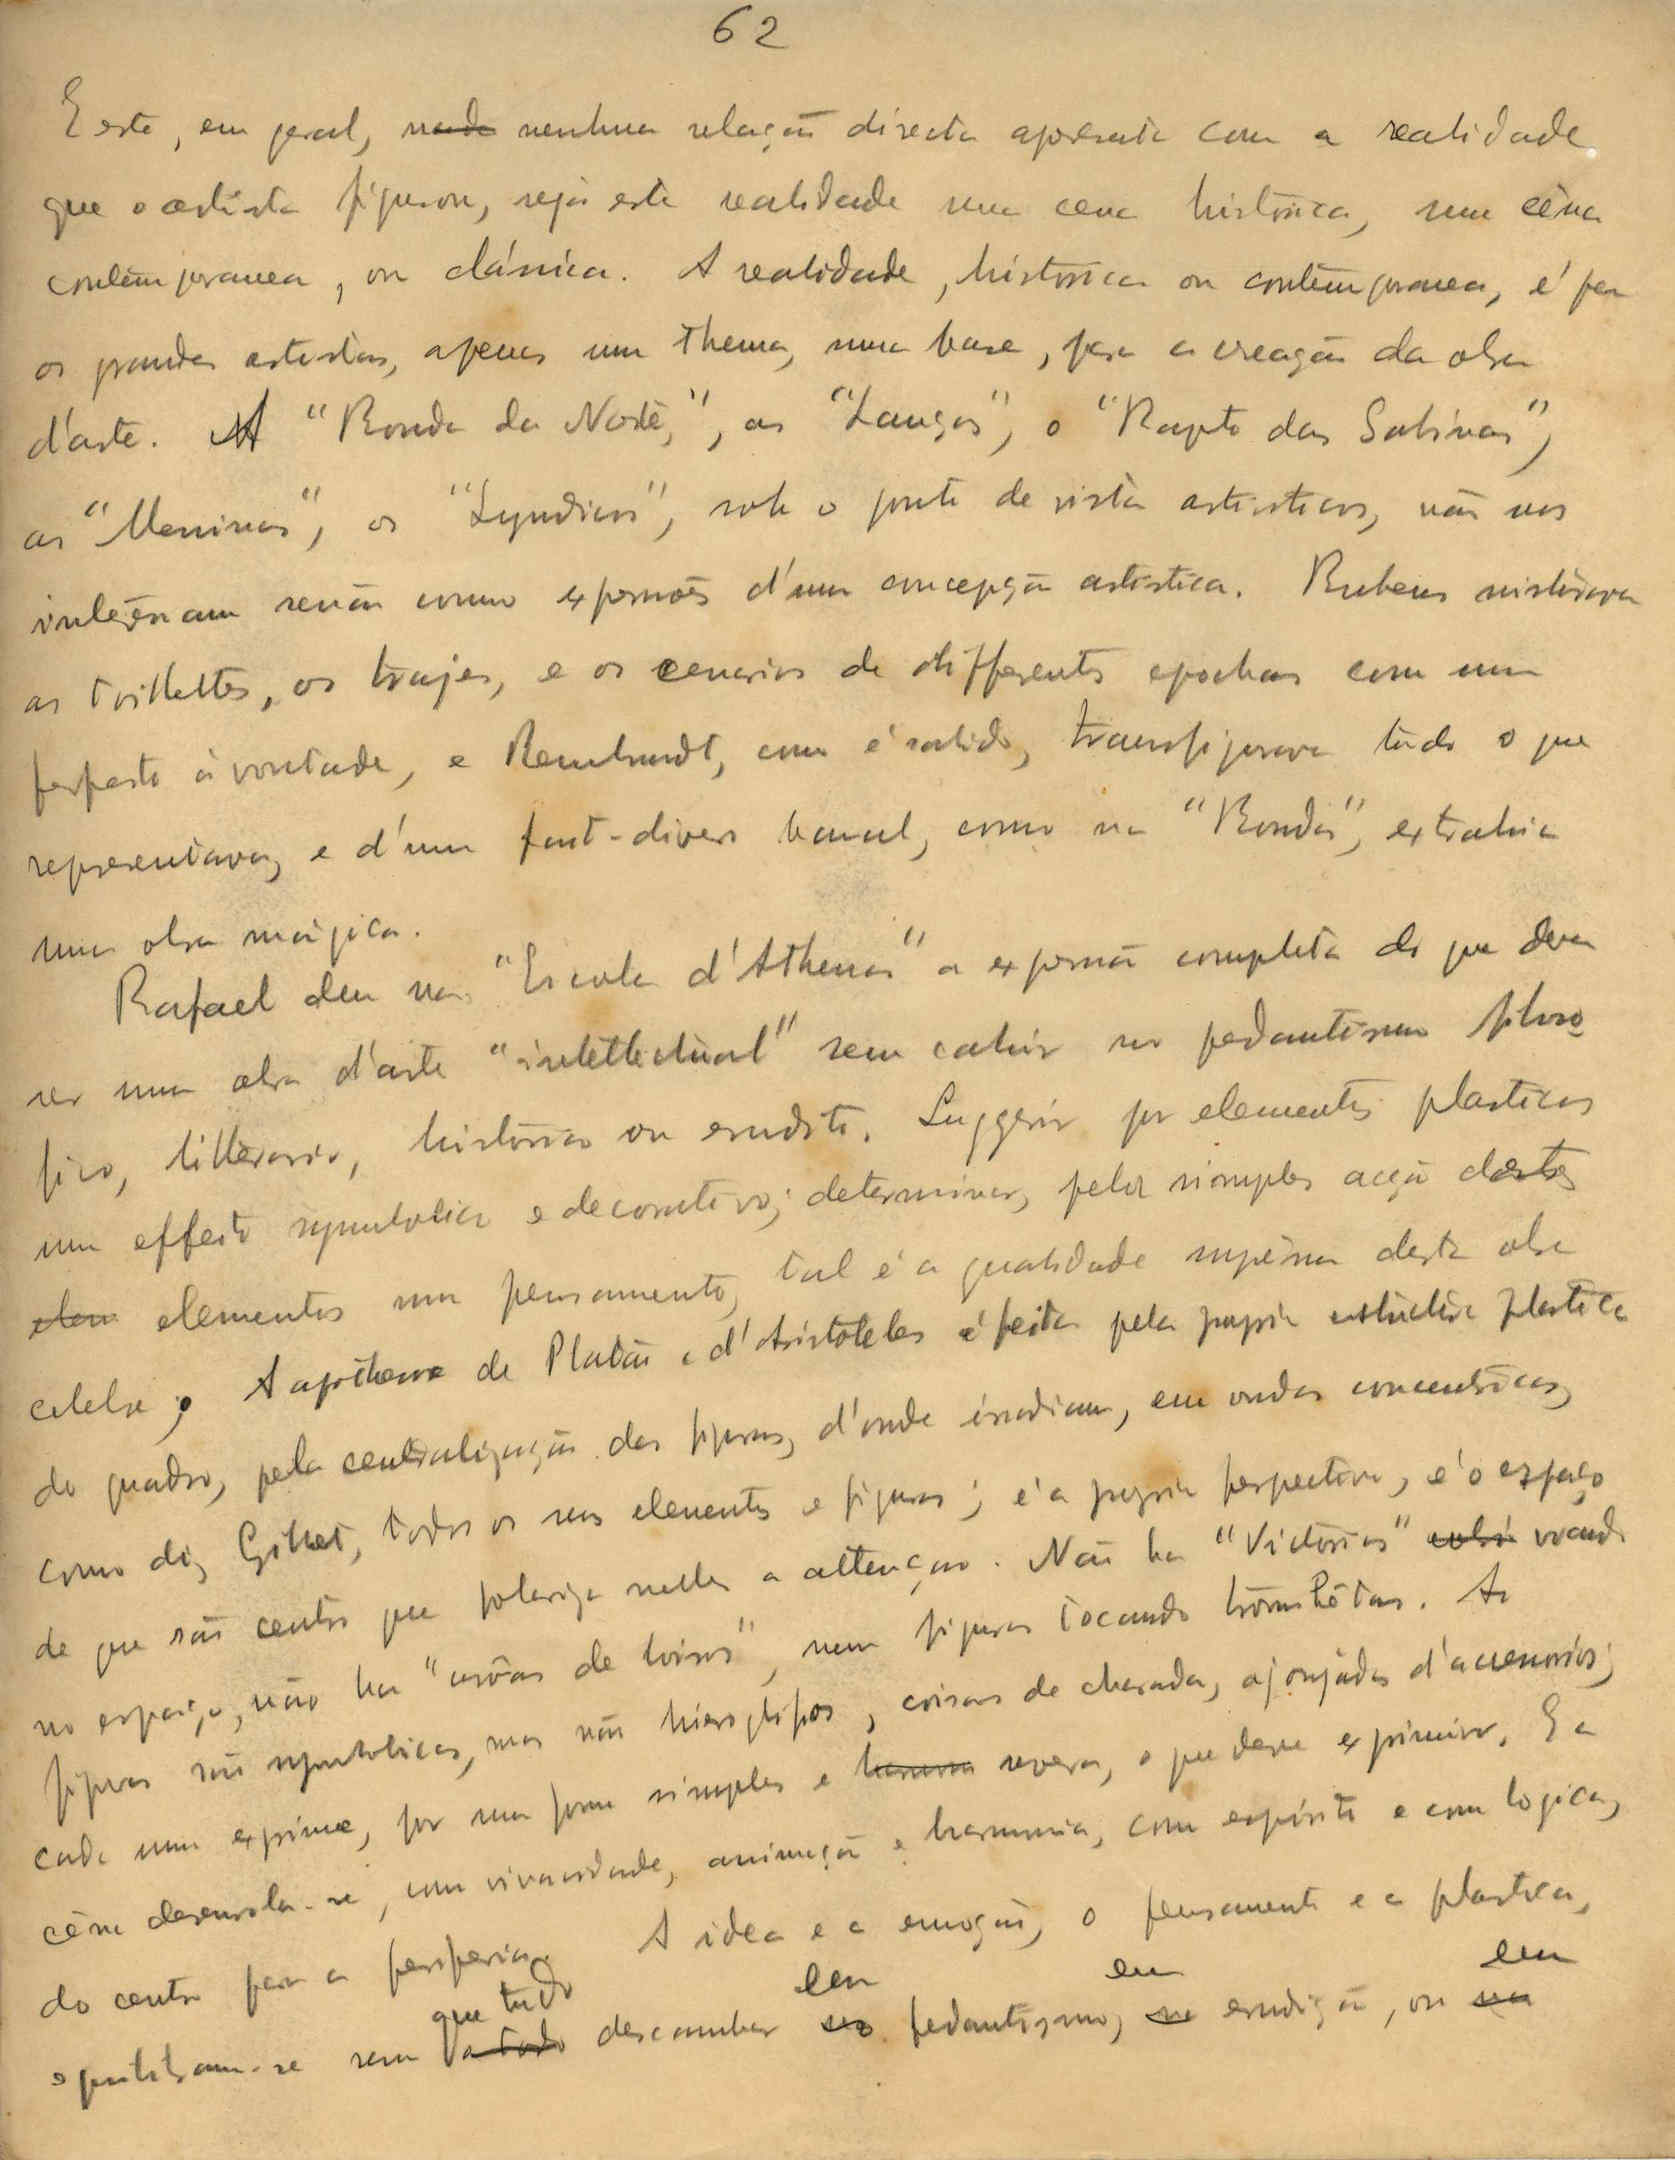 62
E este, em geral, nada nenhuma relação directa apresenta com a realidade
que o artista figurou, seja esta realidade uma cena histórica, uma cêna
contemporanea, ou clássica. A realidade, histórica ou contemporanea, é para
os grandes artistas, apenas um thema, uma base, para a creação da obra
d'arte. A "Ronda da Noite,", as "Lanças", o "Rapto das Sabinas",
as "Meninas", os "Syndicos", sob o ponto de vista artistico, não nos
interessam senão como expressões d'uma concepção artistica. Rubens misturava
as toillettes, os trajes, e os cenarios de differentes epochas com um
perfeito á vontade, e Rembrandt, como é sabido, transfigurava tudo o que
representava, e d'um fait-divers banal, como na "Ronda", extrahia
uma obra mágica.
Rafael deu na "Escola d'Athenas" a expressão completa do que deve
ser uma obra d'arte "intellectual" sem cahir no pedantismo philoso
fico, litterario, histórico ou erudito. Suggerir por elementos plasticos
um effeito symbolico e decorativo; determinar, pela simples acção destes
elem elementos um pensamento, tal é a qualidade suprema desta obra
celebre; A apotheose de Platão e d'Aristoteles é feita pela propria estructura plastica
do quadro, pela centralização das figuras, d'onde irradiam, em ondas concentricas,
como diz Gillet, todos os seus elementos e figuras; é a propria perspectiva, é o espaço
de que são centro que polariza nelles a attenção. Não ha "Victorias" voando
no espaço, não ha "corôas de loiros", nem figuras tocando trombêtas. As
figuras são symbolicas, mas não hieroglifos, coisas de charada, ajoujadas d'accessorios;
cada uma exprime, por uma forma simples e severa, o que deve exprimir. E a
cêna desenrola-se, com vivacidade, animação e harmonia, com espirito e com logica,
do centro para a periferia. A idea e a emoção, o pensamento e a plastica,
que tudo em em em
equilibram-se sem a tudo descambar no pedantismo, na erudição, ou na